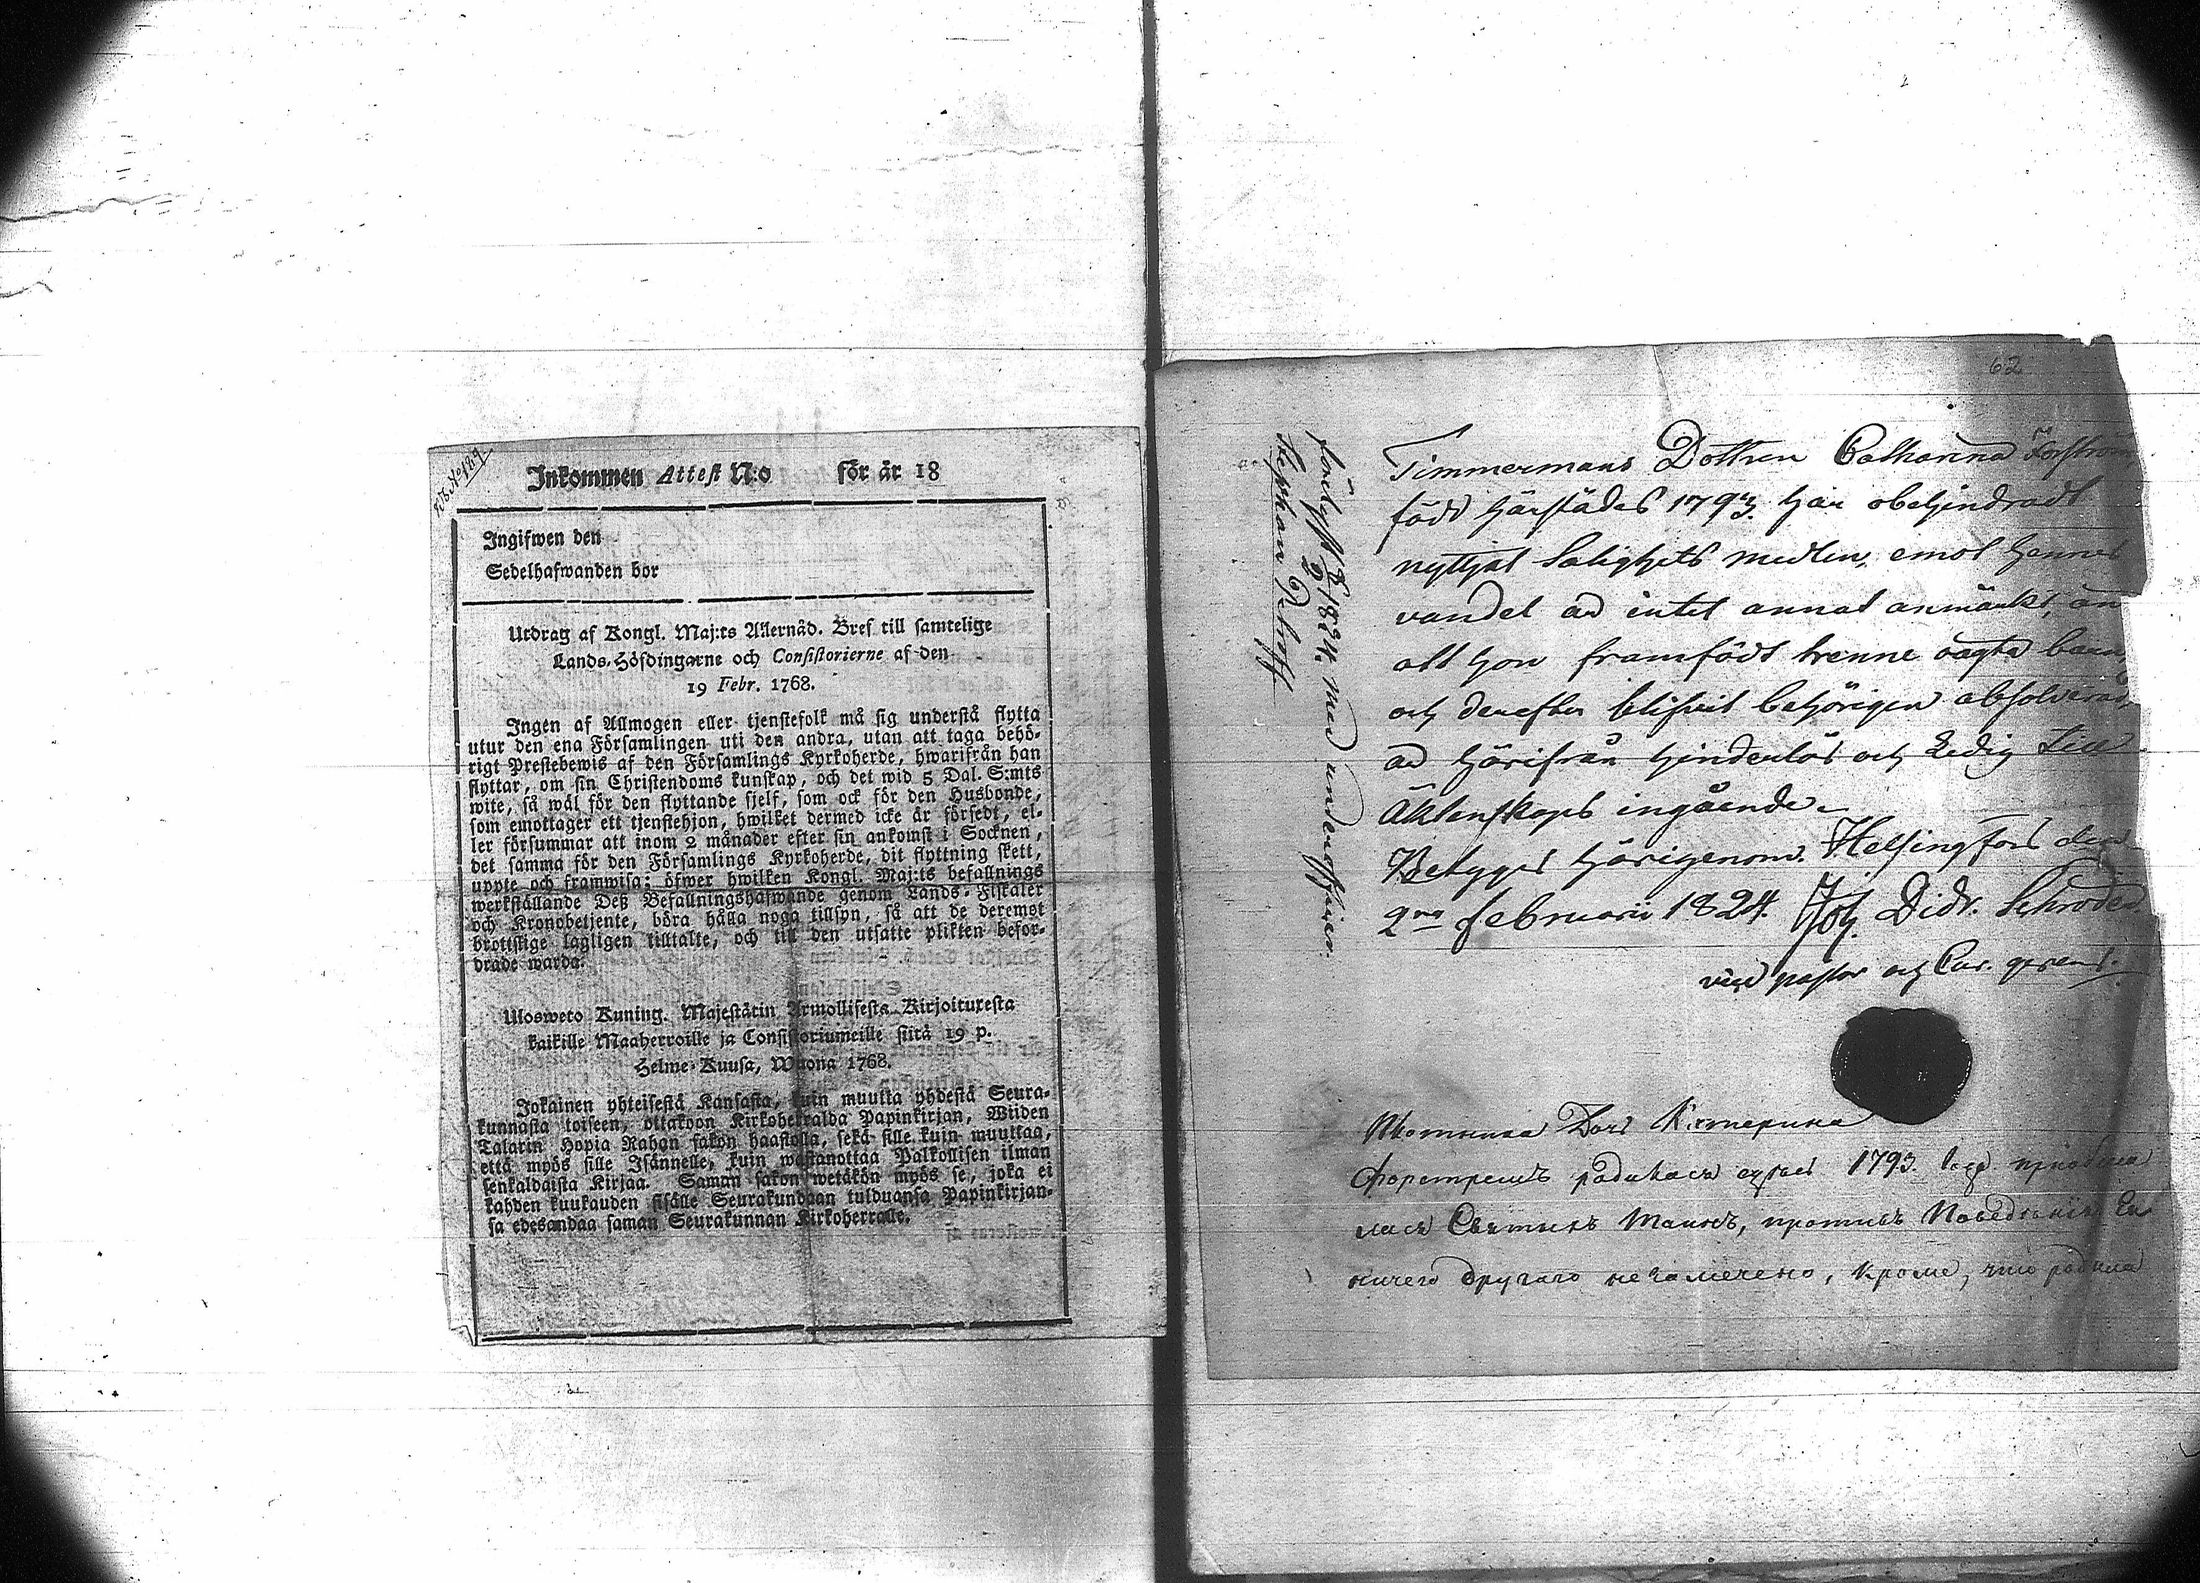 Inkommen Attest N:o för år 18
Ingifwen den
Sedelhafwanden bor
Utdrag af Kongl. Maj:ts Allernåd. Bref till samtelige
Lands-Höfdingarne och Consistorierne af den
19 Febr. 1768.
Ingen af Allmogen eller tjenstefolk må sig understå flytta
utur den ena Församlingen uti den andra, utan att taga behö-
rigt Prestebewis af den Församlings Kyrkoherde, hwarifrån han
flyttar, om sin Christendoms kunskap, och det wid 5 Dal. S:mts
wite, så wäl för den flyttande sjelf, som ock för den Husbonde,
som emottager ett tjenstehjon, hwilket dermed icke är försedt, el-
ler försummar att inom 2 månader efter sin ankomst i Socknen,
det samma för den Församlings Kyrkoherde, dit flyttning skett,
uppte och framwisa; öfwer hwilken Kongl. Maj:ts befallnings
werkställande Deß Befallningshafwande genom Lands-Fiskaler
och Kronobetjente, böra hålla noga tillsyn, så att de deremot
brottslige lagligen tilltalte, och till den utsatte plikten befor-
drade warda.
Ulosweto Kuning. Majestätin Armollisesta Kirjoituresta
kaikille Maaherroille ja Consistoriumeille siitä 19 p.
Helme-Kuusa, Wuona 1768.
Jokainen yhteisestä Kansasta, kuin muutta yhdestä Seura-
kunnasta toiseen, ottakoon Kirkoherralda Papinkirjan, Wiiden
Talarin Hopia Rahan sakon haastolla, sekä sille kuin muuttaa,
että myös sille Isännelle, kuin wastanottaa Palkollisen ilman
senkaldaista Kirjaa. Saman sakon wetäkön myös se, joka ei
kahden kuukauden sisälle Seurakundaan tulduansa Papinkirjan-
sa edesandaa saman Seurakunnan Kirkoherralle.
62
Timmermans Dottren Catharina Forström
född härstädes 1793. har obehindradt
nyttjat Salighets medlen, emot hennes
vandel är intet annat anmärkt, än
att hon framfödt trenne oägta barn,
och derefter blifvit behörigen absolverad,
är härifrån hinderlös och Ledig till
Äktenskaps ingående.
Betygas härigenom. Helsingfors den
2na februarii 1824. Joh. Didr. Schroder
vice pastor och Cur. gerens.
1824. med underofficer
Stephan
Плотника Дочь Катерина
Форстремъ родилась здѣсь 1793. года приобща
лась Святыхъ Таинъ, противъ Поведенія Ея
ничего другаго не замечено, кроме, что родила